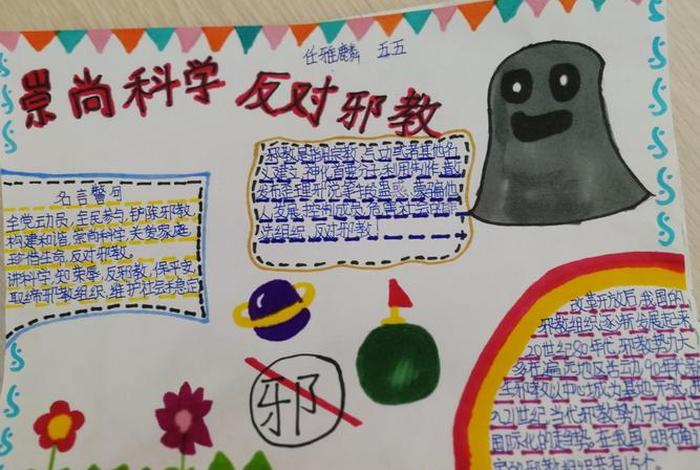 任雅麟 五五
崇尚科学 反对邪教
邪教是指冒用宗教、气功或者其他名
义建立、神化首要分子,利用制作、散
布歪理邪说等手段蛊惑、蒙骗他
人,发展、控制成员,危害社会的非
法组织。反对邪教!
名言警句
全党动员,全民参与,铲除邪教,
构建和谐,崇尚科学,关爱家庭,
珍惜生命,反对邪教。
讲科学,知荣辱,反邪教,保平安,
取缔邪教组织,维护社会稳定
邪
改革开放后,我国的
邪教组织逐渐发展起来
20世纪80年代,邪教势力大
多在偏远地区活动,90年代
邪教以中心城为基地
入21世纪,当代邪教势力开始出
国际化的趋势。在我国,明确